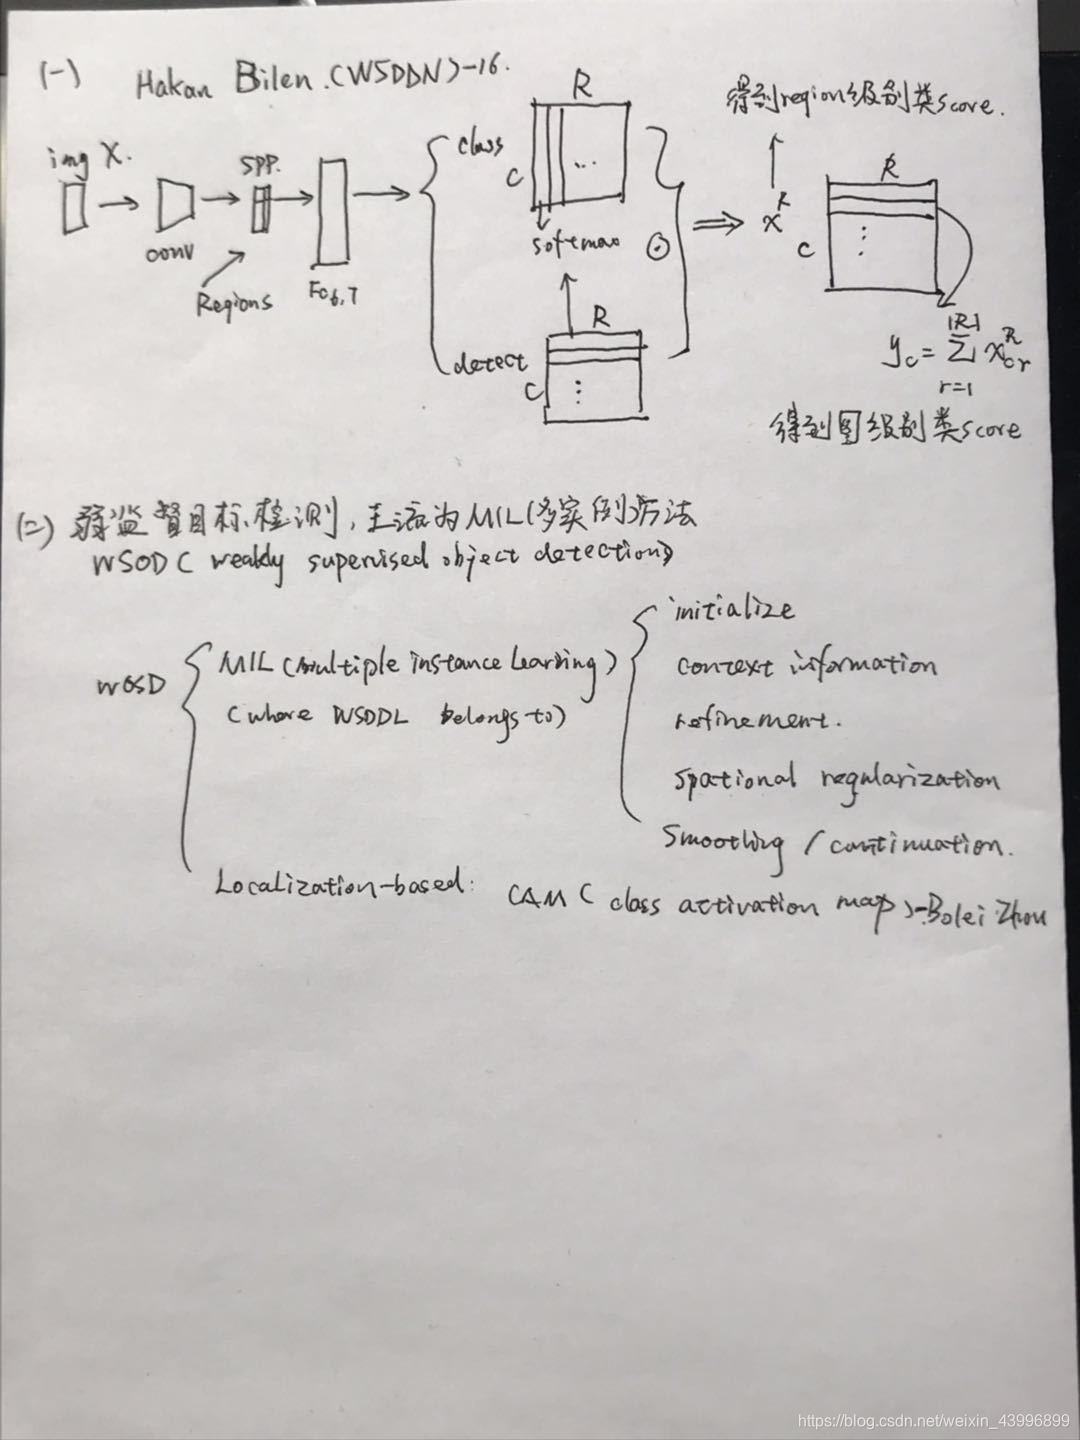 (一) Hakan Bilen.(WSDDN)-16.
img X.
conv
SPP.
Regions
Fc6,7
class
R
C
...
softmax
⊙
detect
R
C
⋮
得到region级别类score.
x^R
R
C
⋮
y_c = Σ_{r=1}^{|R|} x^R_{cr}
得到图级别类score
(二) 弱监督目标检测,主流为MIL(多实例)方法
WSOD ( weakly supervised object detection)
WOSD
MIL (Multiple instance Learning)
(where WSDDL belongs to)
initialize
context information
refinement.
spational regularization
Smoothing / continuation.
Localization-based:
CAM ( class activation map )-Bolei Zhou
https://blog.csdn.net/weixin_43996899